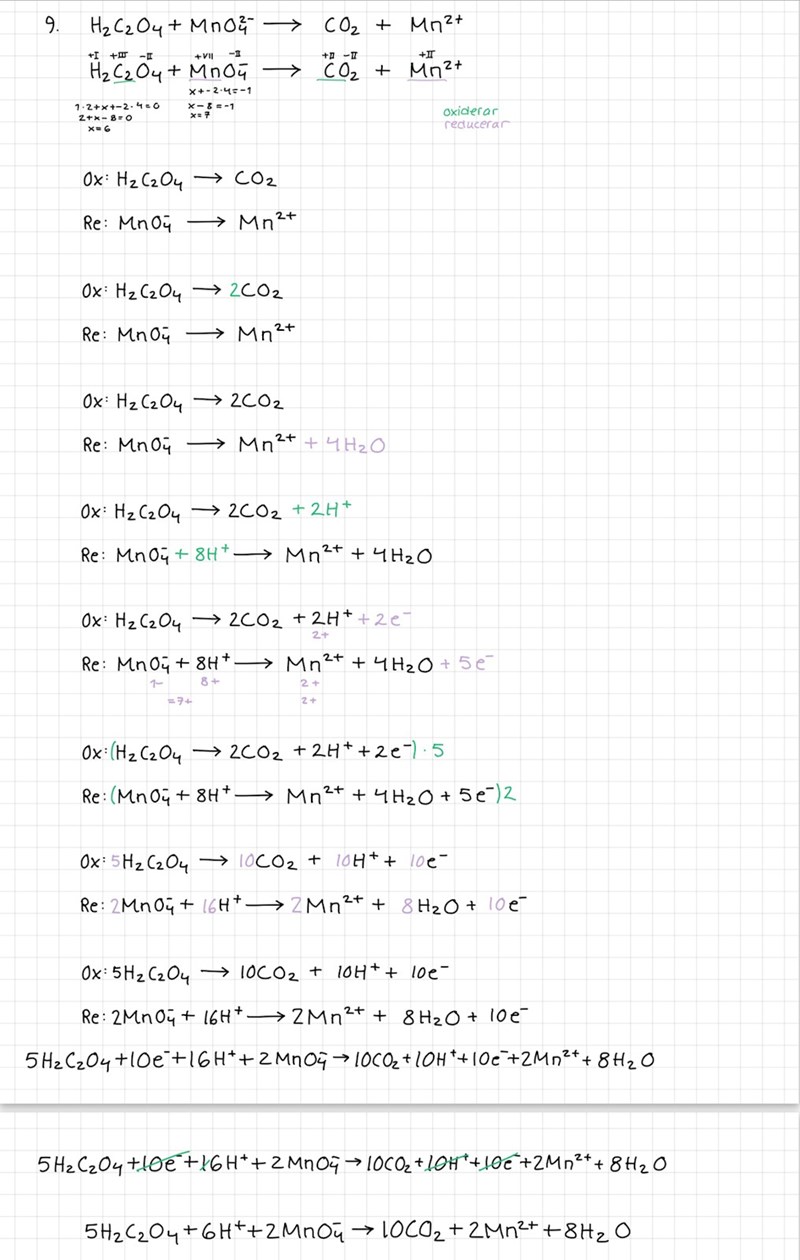 9. H₂C₂O₄ + MnO₄²⁻ → CO₂ + Mn²⁺
+I +III -II +VII -II +II -II +II
H₂C₂O₄ + MnO₄⁻ → CO₂ + Mn²⁺
1·2+x+-2·4=0 x+-2·4=-1
2+x-8=0 x-8=-1
x=6 x=7
oxiderar
reducerar
Ox: H₂C₂O₄ → CO₂
Re: MnO₄⁻ → Mn²⁺
Ox: H₂C₂O₄ → 2CO₂
Re: MnO₄⁻ → Mn²⁺
Ox: H₂C₂O₄ → 2CO₂
Re: MnO₄⁻ → Mn²⁺ + 4H₂O
Ox: H₂C₂O₄ → 2CO₂ + 2H⁺
Re: MnO₄⁻ + 8H⁺ → Mn²⁺ + 4H₂O
Ox: H₂C₂O₄ → 2CO₂ + 2H⁺ + 2e⁻
2+
Re: MnO₄⁻ + 8H⁺ → Mn²⁺ + 4H₂O + 5e⁻
1- 8+ 2+
=7+ 2+
Ox: (H₂C₂O₄ → 2CO₂ + 2H⁺ + 2e⁻)·5
Re: (MnO₄⁻ + 8H⁺ → Mn²⁺ + 4H₂O + 5e⁻)2
Ox: 5H₂C₂O₄ → 10CO₂ + 10H⁺ + 10e⁻
Re: 2MnO₄⁻ + 16H⁺ → 2Mn²⁺ + 8H₂O + 10e⁻
Ox: 5H₂C₂O₄ → 10CO₂ + 10H⁺ + 10e⁻
Re: 2MnO₄⁻ + 16H⁺ → 2Mn²⁺ + 8H₂O + 10e⁻
5H₂C₂O₄+10e⁻+16H⁺+2MnO₄⁻→10CO₂+10H⁺+10e⁻+2Mn²⁺+8H₂O
5H₂C₂O₄+10e⁻+16H⁺+2MnO₄⁻→10CO₂+10H⁺+10e⁻+2Mn²⁺+8H₂O
5H₂C₂O₄+6H⁺+2MnO₄⁻→10CO₂+2Mn²⁺+8H₂O